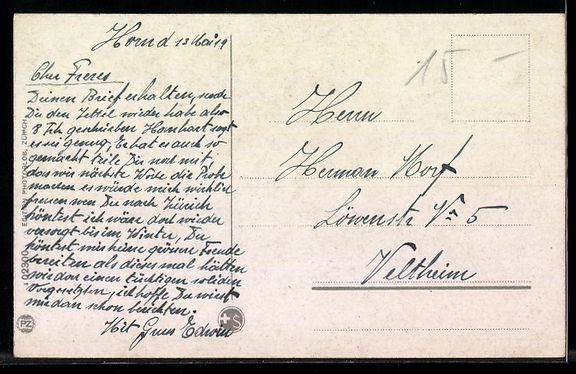 Horn d 13 Mai 19
Cher Freres
Deinen Brief erhalten, nach
Du den Zettel wieder habe also
8 Fch geschrieben Hornhart sagt
es sei genug, Er hat es auch so
gemacht teile Dir noch mit
das wir nächste Woche die Probe
machen es würde mich wirklich
freuen wen Du nach Zürich
köntest ich wäre dort wieder
versorgt bis im Winter, Du
köntest mir keine grössere Freude
bereiten als dieses mal hätten
wir dan einen tüchtigen soliden
Vorgesetzten, ich hoffe Du wirst
mir dan schon berichten.
Mit Gruss Edwin
15 –
Herrn
Herman Morf
Löwenstr No 5
Veltheim
PHOTOGLOB, ZÜRICH
02300
PZ